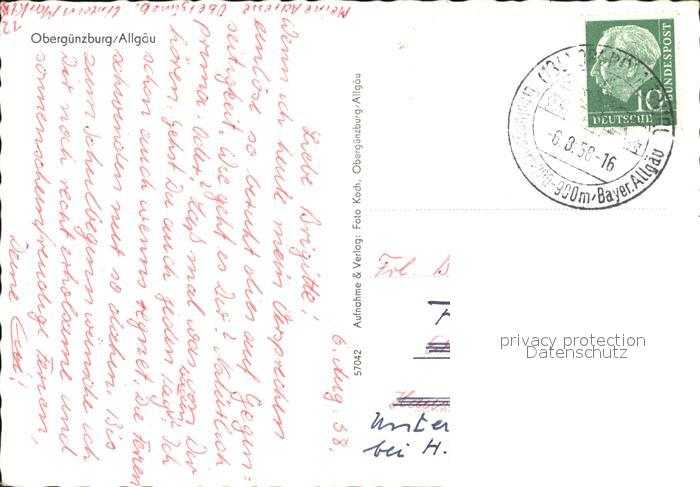 Meine Adresse Obergünzb. Unterer Markt
12
Obergünzburg/Allgäu
6. Aug. 58.
Liebe Brigitte!
Wenn ich heute mein Versprechen
einlöse so beruht dies auf Gegen=
seitigkeit. Wie geht es Dir? Natürlich
prima. Oder? Laß mal was von Dir
hören. Gehst Du auch jeden Tag? Ich
schon auch wenns regnet. Die Ferien
schwinden nur so dahin. Bis
zum Schulbeginn wünsche ich
Dir noch recht erholsame und
sonnenscheinfreudige Ferien,
Deine
57042 Aufnahme & Verlag: Foto Koch, Obergünzburg/Allgäu
DEUTSCHE
BUNDESPOST
10
-6.8.58-16
900m/Bayer.Allgäu
Frl. B
Unter
bei H.
privacy protection
Datenschutz